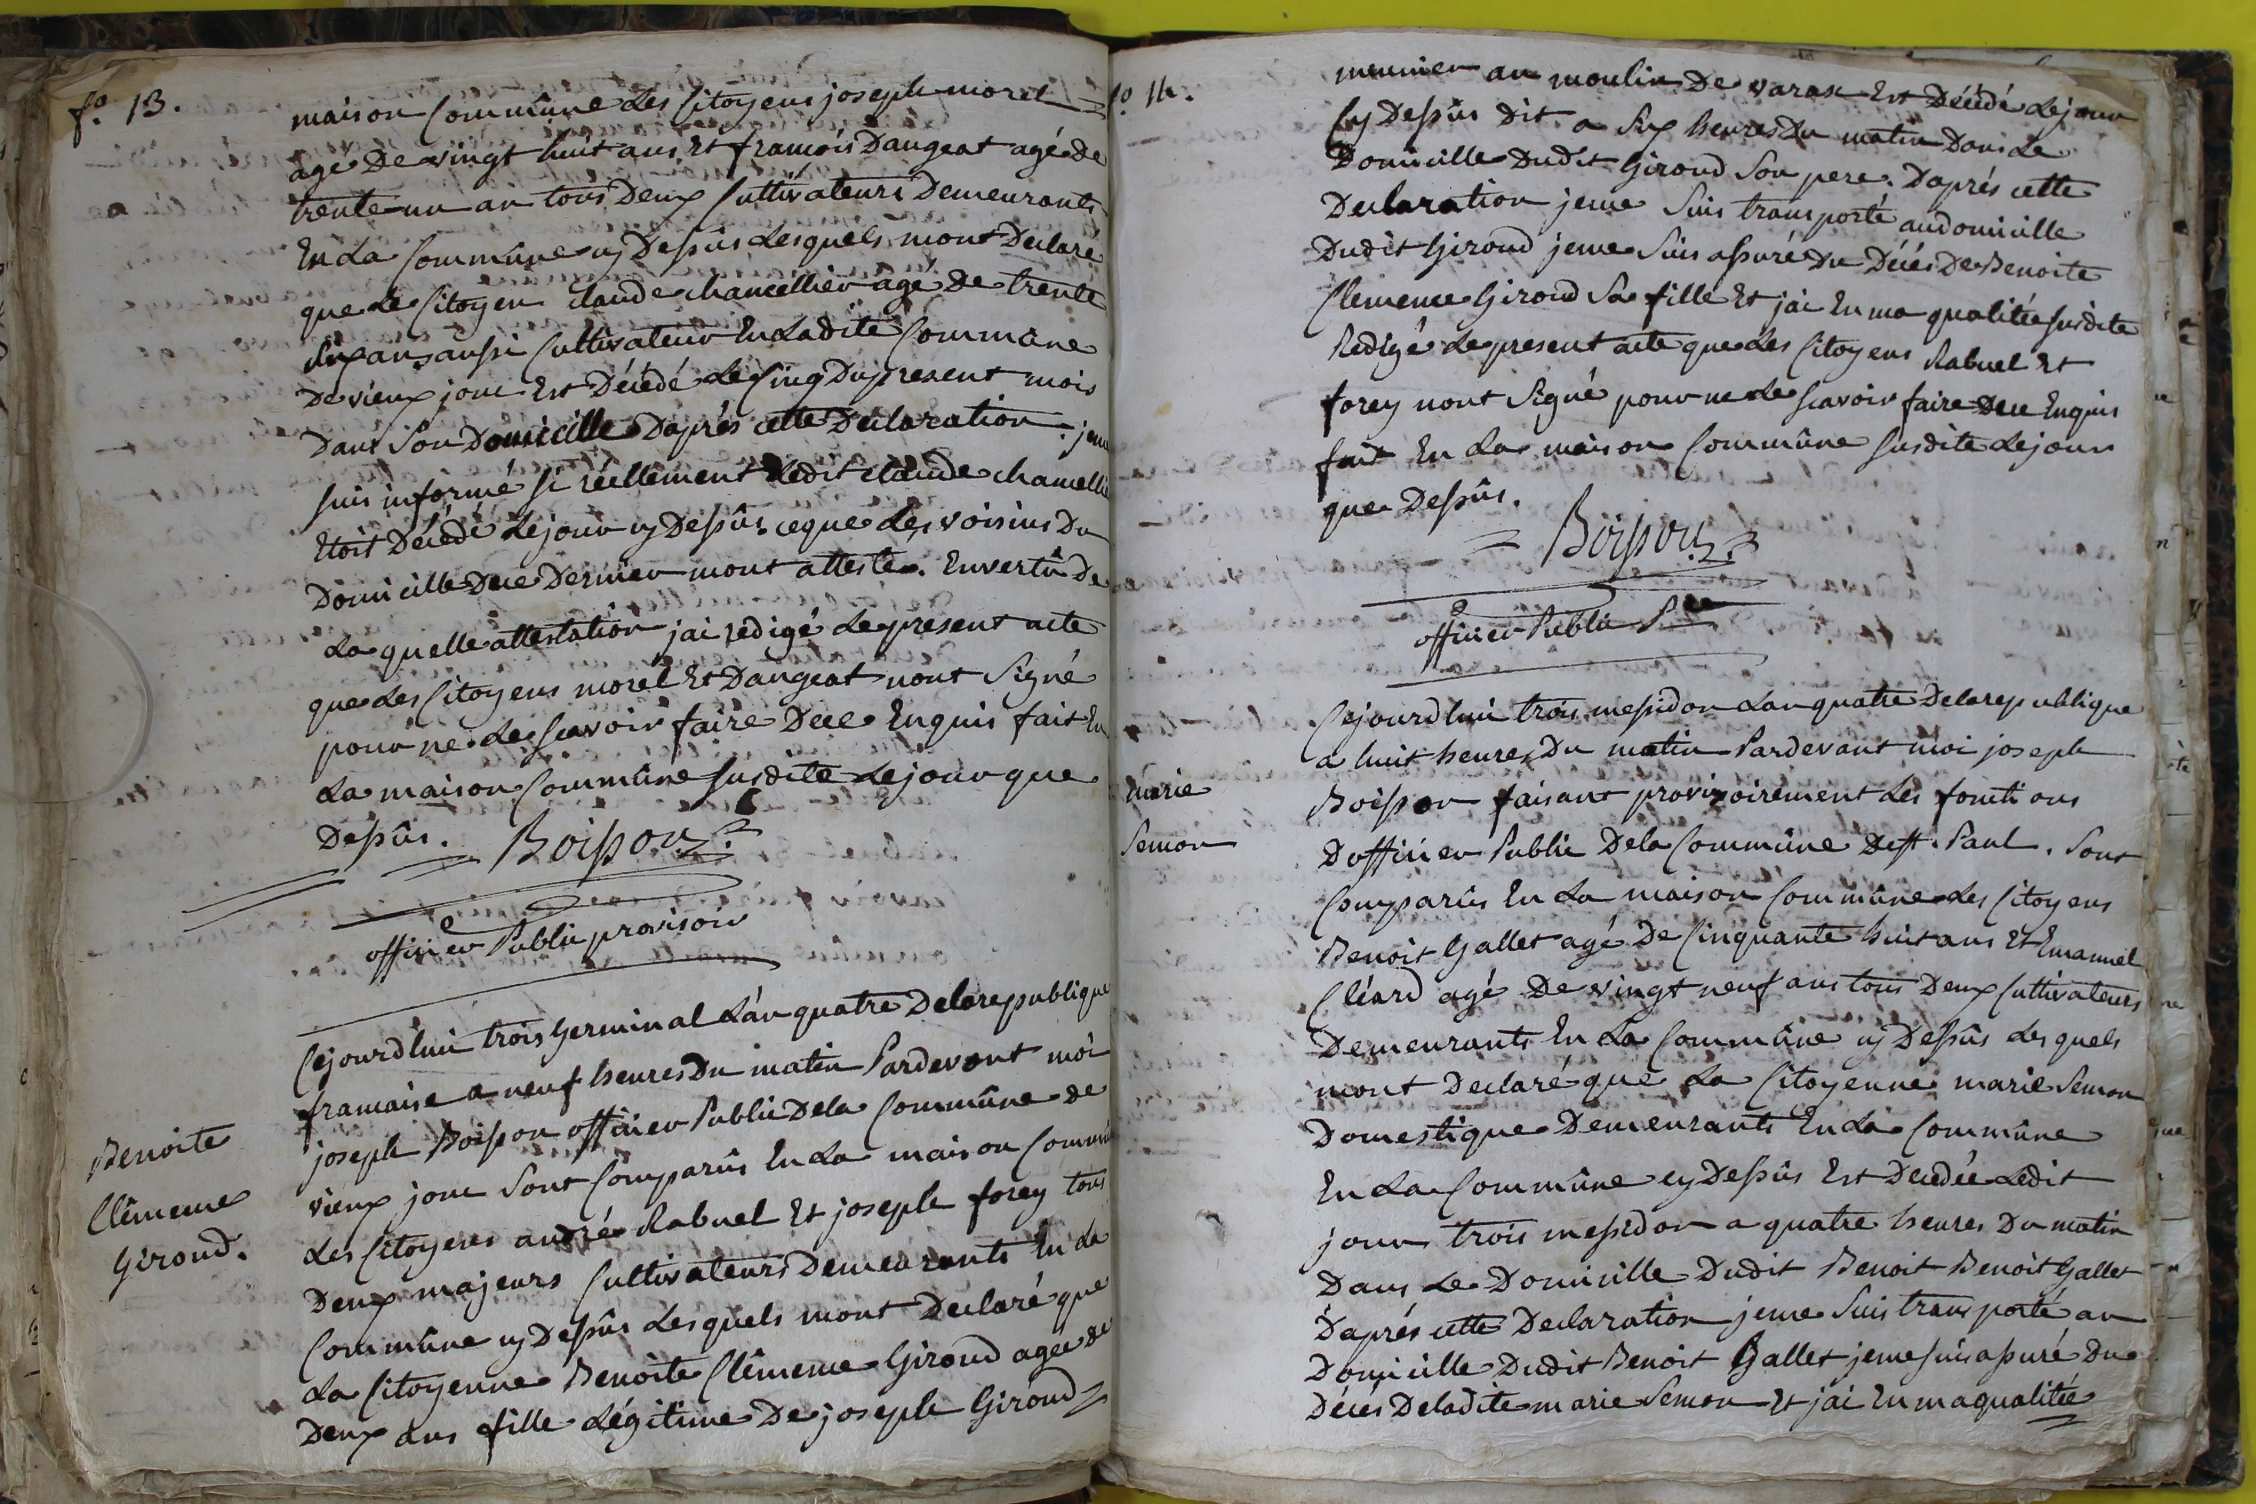 fo. 13.
maison Commûne les Citoyens joseph morel
agé De vingt huit ans Et françois Dangeat agé de
trente un an tous Deux Cultivateurs Demeurants
En La Commûne cy Depûs Lesquels mont Declaré
que Le Citoyen claude chancellier agé De trente
six ans aussi Cultivateur En Ladite Commûne
De vieux jonc Est Décédé Le Cinq Du present mois
Dans Son Domicille Daprés cette Declaration. jeme
suis informé si réellement Ledit claude chancellie
Etoit Décédé Le jour cy Depûs ceque Les voisins Du
Domicille De ce Dernier mont attesté. En vertû De
La quelle attestation jai redigé Le present acte
que Les Citoyens morel Et Dangeat nont Signé
pour ne Le Scavoir faire De ce Enquis fait En
La maison Commûne susdite Le jour que
Depûs. Boisson
officier Public provisoir
Benoite
Clêmence
Giroud.
Cejourdhui trois Germinal Lan quatre De la republique
francaise a neuf heures Du matin Pardevant moi
joseph Boisson officier Public De la Commûne de
vieux jonc Sont Comparûs En La maison Commû
Les Citoyens andré Rabuel Et joseph forey tous
Deux majeurs Cultivateurs Demeurants En La
Commûne cy Depûs Lesquels mont Declaré que
La Citoyenne Benoite Clêmence Giroud agée de
Deux ans fille Légitime De joseph Giroud
fo 14.
meunier au moulin De varax Est Décédé Lejour
Cy Depûs Dit a Six heures Du matin Dans Le
Domicille Dudit Giroud Son pere. Daprés cette
Declaration jeme Suis transporté au domicille
Dudit Giroud jeme Suis assuré Du Décés De Benoite
Clemence Giroud Sa fille Et jai En ma qualitée susdite
Redigé Le present acte que Les Citoyens Rabuel Et
forey nont Signé pour ne Le scavoir faire De ce Enquis
fait En La maison Commûne susdite Lejour
que Depûs.
Boisson
officier Public Pre
marie
Semon
Cejourdhui trois messidor Lan quatre De la republique
a huit heures Du matin Pardevant moi joseph
Boisson faisant provisoirement Les fonctions
Dofficier Public De la Commûne De St. Paul. Sont
Comparûs En La maison Commûne Les Citoyens
Benoit Gallet agé De Cinquante huit ans Et Emanuel
Cléard agé De vingt neuf ans tous Deux Cultivateurs
Demeurants En La Commûne cy Depûs Lesquels
mont Declaré que La Citoyenne marie Semon
Domestique Demeurants En La Commûne
En La Commûne cy Depûs Est Decedée Ledit
jour trois messidor a quatre heures Du matin
Dans Le Domicille Dudit Benoit Benoit Gallet
Daprés cette Declaration jeme Suis transporté au
Domicille Dudit Benoit Gallet jeme suis assuré Du
Décés De ladite marie Semon Et jai En ma qualitée